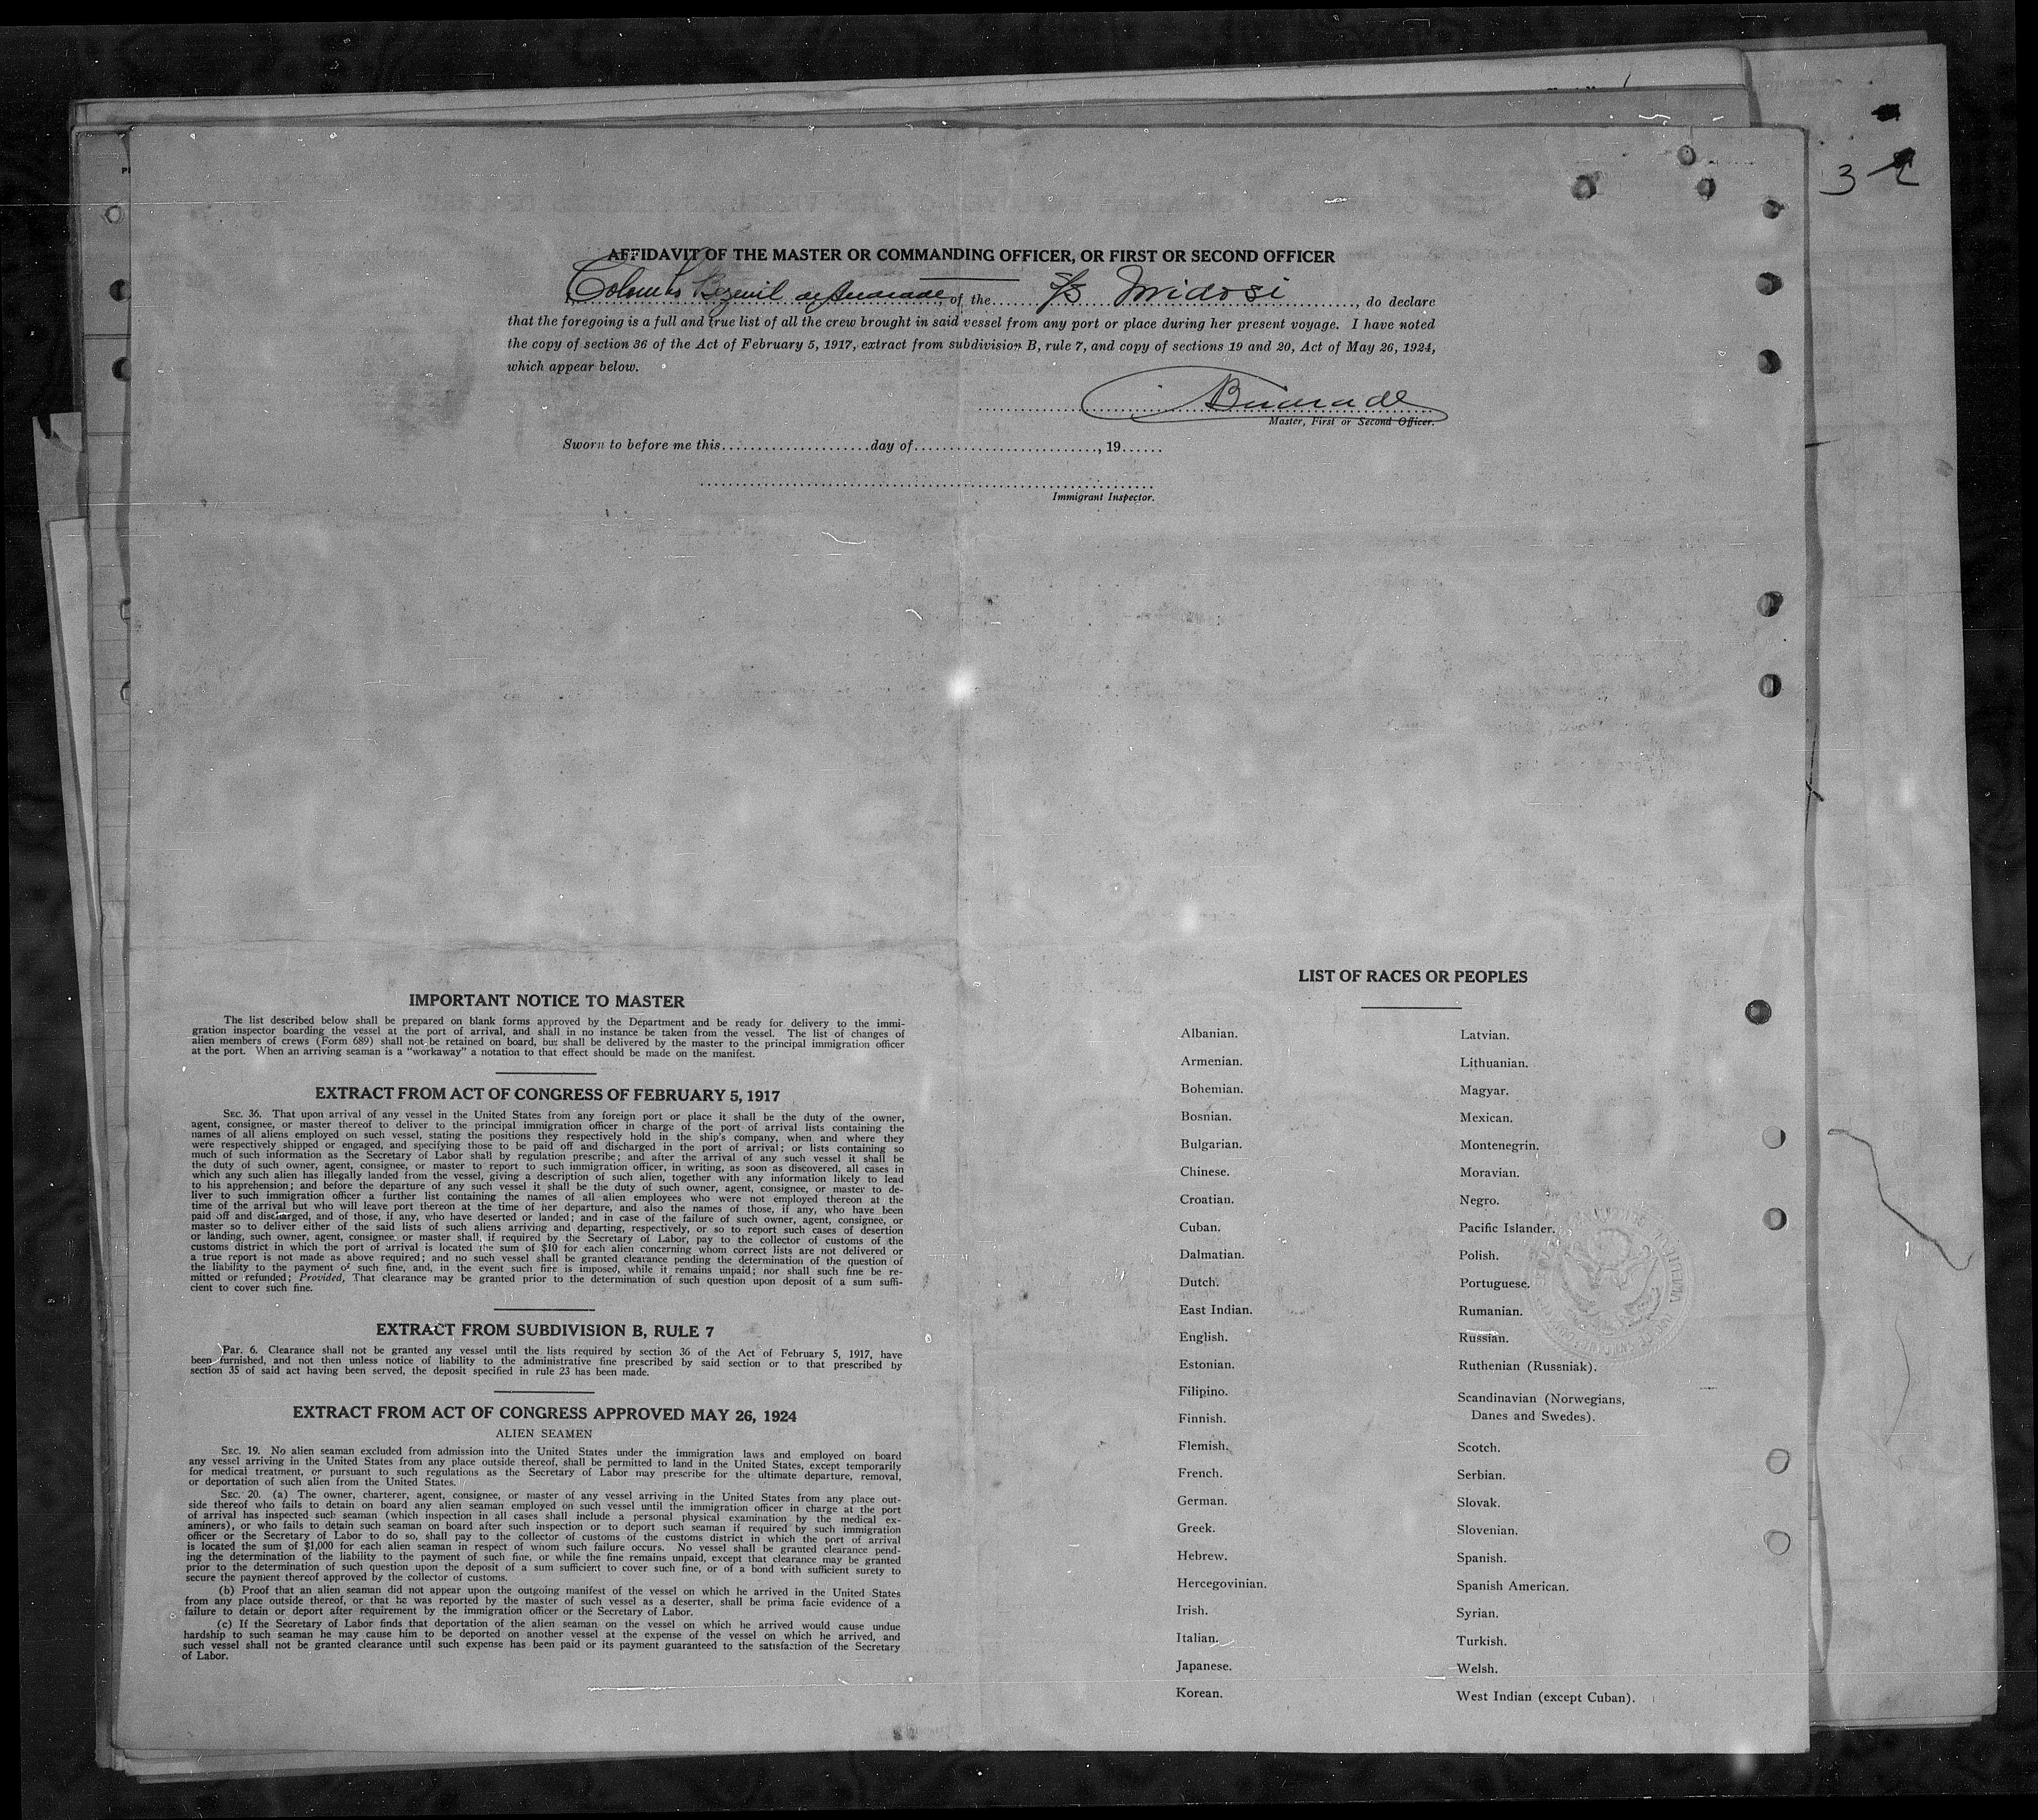 32
AFFIDAVIT OF THE MASTER OR COMMANDING OFFICER, OR FIRST OR SECOND OFFICER
I, Colombo de Andrade of the S/S Midosi, do declare
that the foregoing is a full and true list of all the crew brought in said vessel from any port or place during her present voyage. I have noted
the copy of section 36 of the Act of February 5, 1917, extract from subdivision B, rule 7, and copy of sections 19 and 20, Act of May 26, 1924,
which appear below.
Master, First or Second Officer.
Sworn to before me this....................day of........................., 19......
Immigrant Inspector.
IMPORTANT NOTICE TO MASTER
The list described below shall be prepared on blank forms approved by the Department and be ready for delivery to the immi-
gration inspector boarding the vessel at the port of arrival, and shall in no instance be taken from the vessel. The list of changes of
alien members of crews (Form 689) shall not be retained on board, but shall be delivered by the master to the principal immigration officer
at the port. When an arriving seaman is a "workaway" a notation to that effect should be made on the manifest.
EXTRACT FROM ACT OF CONGRESS OF FEBRUARY 5, 1917
SEC. 36. That upon arrival of any vessel in the United States from any foreign port or place it shall be the duty of the owner,
agent, consignee, or master thereof to deliver to the principal immigration officer in charge of the port of arrival lists containing the
names of all aliens employed on such vessel, stating the positions they respectively hold in the ship's company, when and where they
were respectively shipped or engaged, and specifying those to be paid off and discharged in the port of arrival; or lists containing so
much of such information as the Secretary of Labor shall by regulation prescribe; and after the arrival of any such vessel it shall be
the duty of such owner, agent, consignee, or master to report to such immigration officer, in writing, as soon as discovered, all cases in
which any such alien has illegally landed from the vessel, giving a description of such alien, together with any information likely to lead
to his apprehension; and before the departure of any such vessel it shall be the duty of such owner, agent, consignee, or master to de-
liver to such immigration officer a further list containing the names of all alien employees who were not employed thereon at the
time of the arrival but who will leave port thereon at the time of her departure, and also the names of those, if any, who have been
paid off and discharged, and of those, if any, who have deserted or landed; and in case of the failure of such owner, agent, consignee, or
master so to deliver either of the said lists of such aliens arriving and departing, respectively, or so to report such cases of desertion
or landing, such owner, agent, consignee, or master shall, if required by the Secretary of Labor, pay to the collector of customs of the
customs district in which the port of arrival is located the sum of $10 for each alien concerning whom correct lists are not delivered or
a true report is not made as above required; and no such vessel shall be granted clearance pending the determination of the question of
the liability to the payment of such fine, and, in the event such fine is imposed, while it remains unpaid; nor shall such fine be re-
mitted or refunded; Provided, That clearance may be granted prior to the determination of such question upon deposit of a sum suffi-
cient to cover such fine.
EXTRACT FROM SUBDIVISION B, RULE 7
Par. 6. Clearance shall not be granted any vessel until the lists required by section 36 of the Act of February 5, 1917, have
been furnished, and not then unless notice of liability to the administrative fine prescribed by said section or to that prescribed by
section 35 of said act having been served, the deposit specified in rule 23 has been made.
EXTRACT FROM ACT OF CONGRESS APPROVED MAY 26, 1924
ALIEN SEAMEN
SEC. 19. No alien seaman excluded from admission into the United States under the immigration laws and employed on board
any vessel arriving in the United States from any place outside thereof, shall be permitted to land in the United States, except temporarily
for medical treatment, or pursuant to such regulations as the Secretary of Labor may prescribe for the ultimate departure, removal,
or deportation of such alien from the United States.
SEC. 20. (a) The owner, charterer, agent, consignee, or master of any vessel arriving in the United States from any place out-
side thereof who fails to detain on board any alien seaman employed on such vessel until the immigration officer in charge at the port
of arrival has inspected such seaman (which inspection in all cases shall include a personal physical examination by the medical ex-
aminers), or who fails to detain such seaman on board after such inspection or to deport such seaman if required by such immigration
officer or the Secretary of Labor to do so, shall pay to the collector of customs of the customs district in which the port of arrival
is located the sum of $1,000 for each alien seaman in respect of whom such failure occurs. No vessel shall be granted clearance pend-
ing the determination of the liability to the payment of such fine, or while the fine remains unpaid, except that clearance may be granted
prior to the determination of such question upon the deposit of a sum sufficient to cover such fine, or of a bond with sufficient surety to
secure the payment thereof approved by the collector of customs.
(b) Proof that an alien seaman did not appear upon the outgoing manifest of the vessel on which he arrived in the United States
from any place outside thereof, or that he was reported by the master of such vessel as a deserter, shall be prima facie evidence of a
failure to detain or deport after requirement by the immigration officer or the Secretary of Labor.
(c) If the Secretary of Labor finds that deportation of the alien seaman on the vessel on which he arrived would cause undue
hardship to such seaman he may cause him to be deported on another vessel at the expense of the vessel on which he arrived, and
such vessel shall not be granted clearance until such expense has been paid or its payment guaranteed to the satisfaction of the Secretary
of Labor.
LIST OF RACES OR PEOPLES
Albanian.
Armenian.
Bohemian.
Bosnian.
Bulgarian.
Chinese.
Croatian.
Cuban.
Dalmatian.
Dutch.
East Indian.
English.
Estonian.
Filipino.
Finnish.
Flemish.
French.
German.
Greek.
Hebrew.
Hercegovinian.
Irish.
Italian.
Japanese.
Korean.
Latvian.
Lithuanian.
Magyar.
Mexican.
Montenegrin.
Moravian.
Negro.
Pacific Islander.
Polish.
Portuguese.
Rumanian.
Russian.
Ruthenian (Russniak).
Scandinavian (Norwegians,
Danes and Swedes).
Scotch.
Serbian.
Slovak.
Slovenian.
Spanish.
Spanish American.
Syrian.
Turkish.
Welsh.
West Indian (except Cuban).